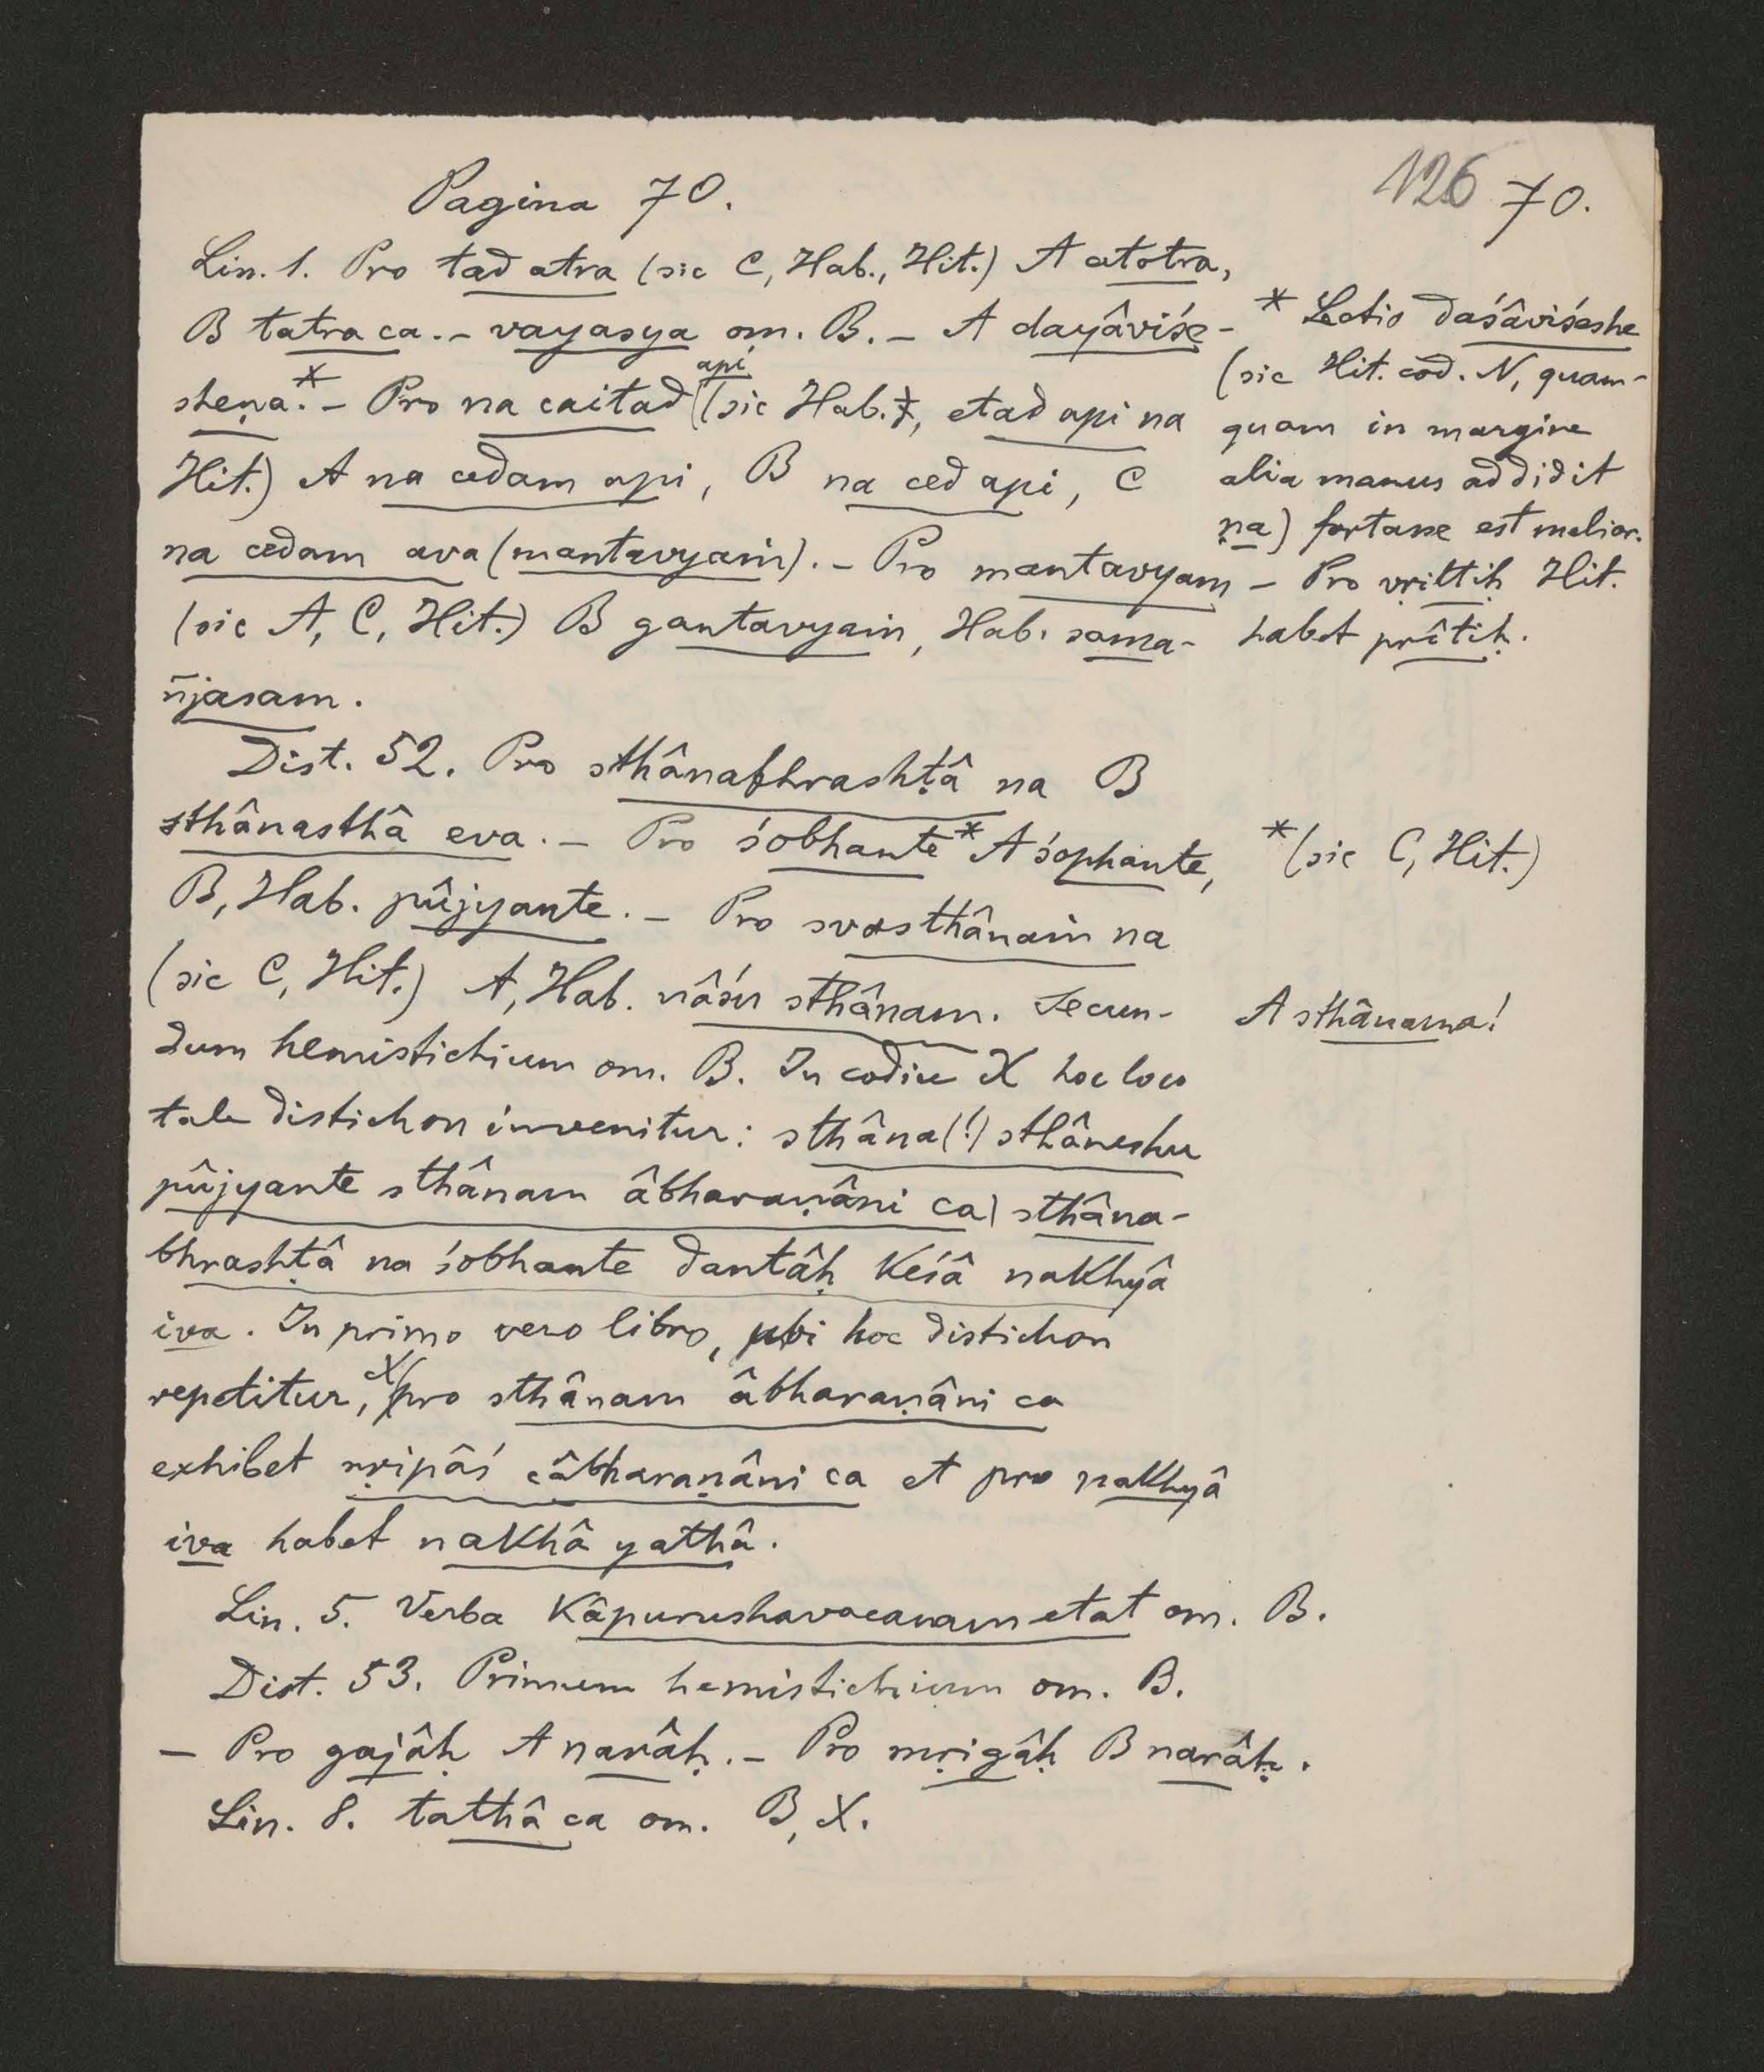 126 70.
Pagina 70.
Lin. 1. Pro tad atra (sic C, Hab., Hit.) A atotra,
B tatra ca. – vayasya om. B. – A dayâviśe-
sheṇa.* – Pro na caitad api (sic Hab., etad api na
Hit.) A na cedam api, B na ced api, C
na cedam ava (mantavyaṁ). – Pro mantavyam
(sic A, C, Hit.) B gantavyaṁ, Hab. sama-
ñjasam.
* Lectio daśâviśeshe
(sic Hit. cod. N, quam-
quam in margine
alia manus addidit
ṇa) fortasse est melior.
– Pro vṛittiḥ Hit.
habet prîtiḥ.
Dist. 52. Pro sthânabhrashṭâ na B
sthânasthâ eva. – Pro śobhante* A śophante,
*(sic C, Hit.)
B, Hab. pûjyante. – Pro svasthânaṁ na
(sic C, Hit.) A, Hab. nâśu sthânam. Secun-
A sthânama!
dum hemistichium om. B. In codice X hoc loco
tale distichon invenitur: sthâna(!) sthâneshu
pûjyante sthânam âbharaṇâni ca| sthâna-
bhrashṭâ na śobhante dantâḥ keśâ nakhyâ
iva. In primo vero libro, ubi hoc distichon
repetitur, X pro sthânam âbharaṇâni ca
exhibet nṛipâś câbharaṇâni ca et pro nakhyâ
iva habet nakhâ yathâ.
Lin. 5. Verba kâpurushavacanam etat om. B.
Dist. 53. Primum hemistichium om. B.
– Pro gajâḥ A narâḥ. – Pro mṛigâḥ B narâḥ.
Lin. 8. tathâ ca om. B, X.